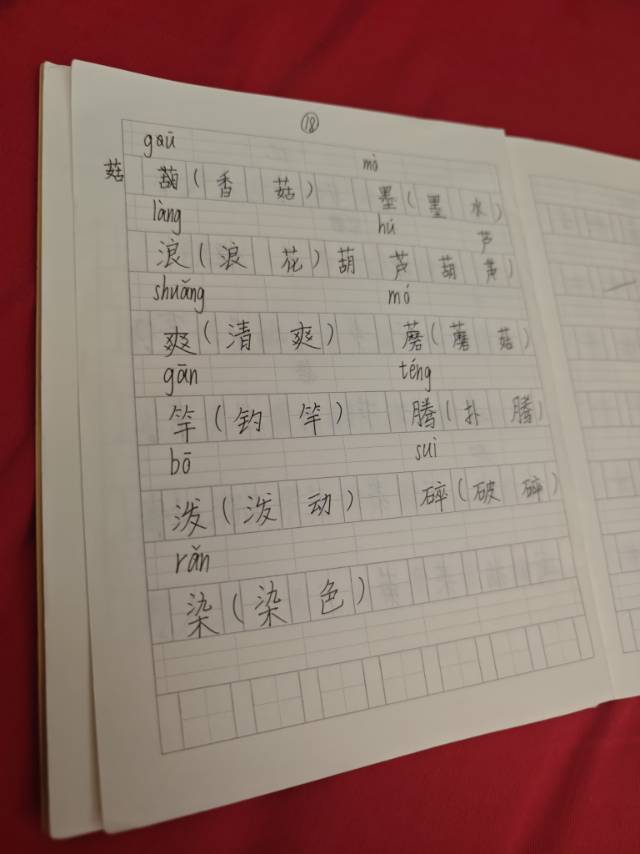 ⑱
gū mò
菇 菇(香菇) 墨(墨水)
làng hú 芦
浪(浪花) 葫芦 葫芦
shuǎng mó
爽(清爽) 蘑(蘑菇)
gān téng
竿(钓竿) 腾(扑腾)
bō suì
泼(泼动) 碎(破碎)
rǎn
染(染色)